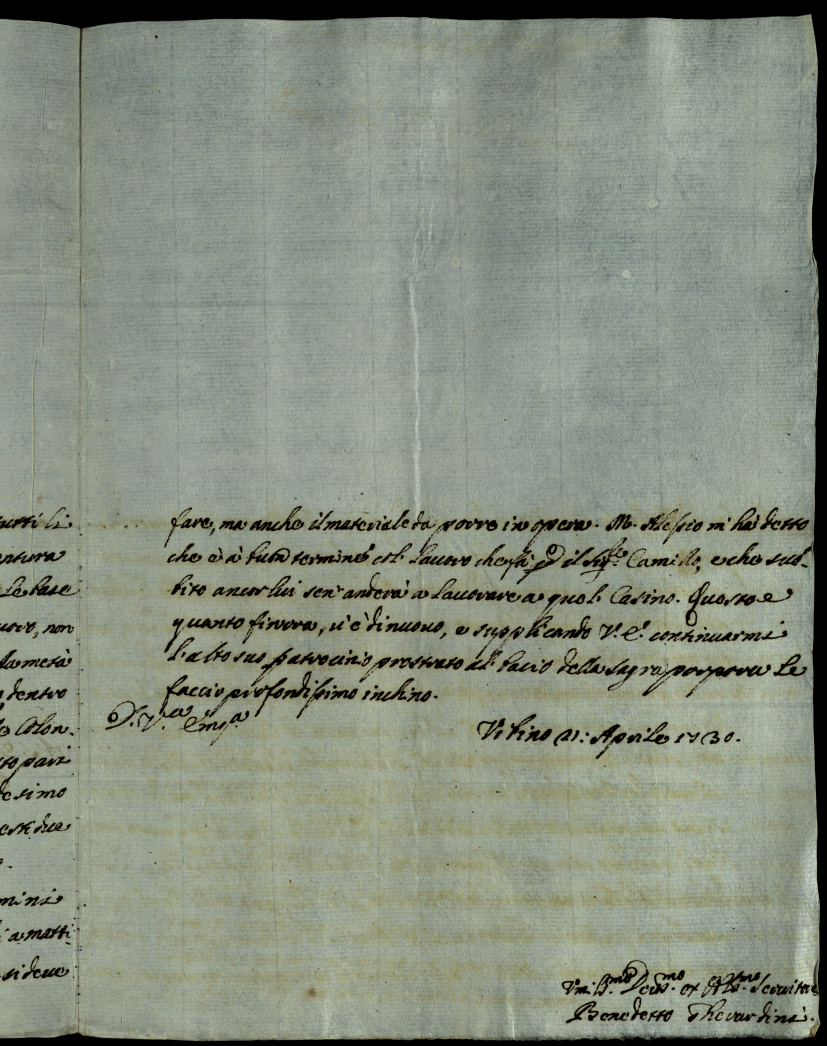 tutti li
antura
Le base
uovo, non
la metà
dentro
Colon-
to pari
desimo
este due
mini
a matti-
si deve
fare, ma anche il materiale da porre in opera. M. Alessio m'hà detto
che è à buon termine col lavoro che fà p il Sig.re Camillo, e che sub-
bito ancor lui sen'anderà a lavorare a quel Casino. Questo e
quanto finora, vi è di nuovo, e supplicando V. E. continuarmi
l'alto suo patrocinio prostrato al bacio della Sagra porpora Le
faccio profondissimo inchino.
D. V.ra Em.za
Urbino 21: Aprile 1730.
Um. Dev.mo et Obl.mo Servitore
Benedetto